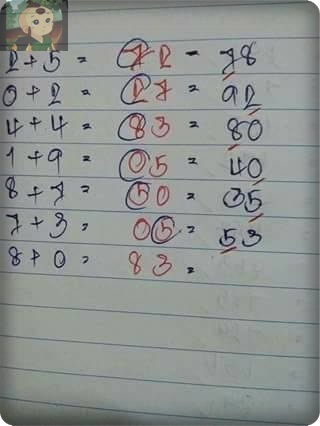 2 + 5 = 72 = 78
0 + 2 = 27 = 92
4 + 4 = 83 = 80
1 + 9 = 05 = 40
8 + 7 = 50 = 35
7 + 3 = 05 = 53
8 + 0 = 83 =